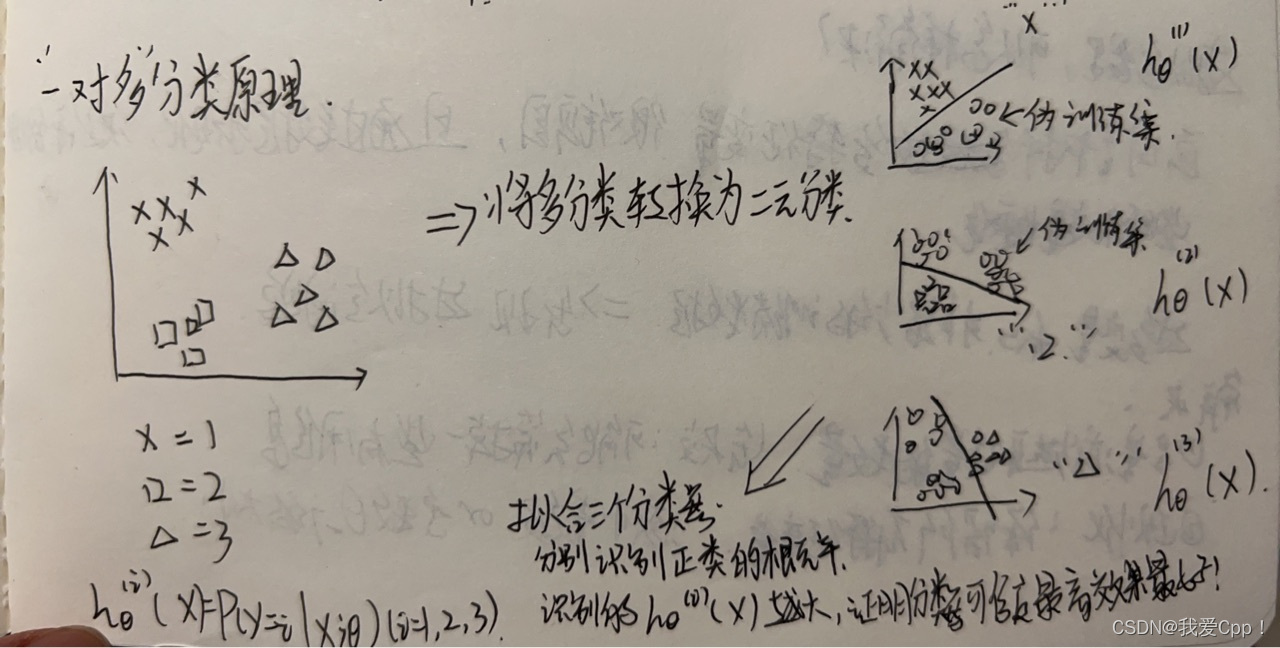 "一对多"分类原理.
=> 将多分类转换为二元分类.
"x"
hθ⁽¹⁾(x)
←伪训练集.
伪训练集
hθ⁽²⁾(x)
"□"
"△"
hθ⁽³⁾(x).
x = 1
□ = 2
△ = 3
拟合三个分类器.
分别识别正类的概率.
hθ⁽ⁱ⁾(x)=P(y=i|x;θ)(i=1,2,3).
识别的hθ⁽ⁱ⁾(x)越大,证明分类器可信度最高效果最好!
CSDN@我爱Cpp!